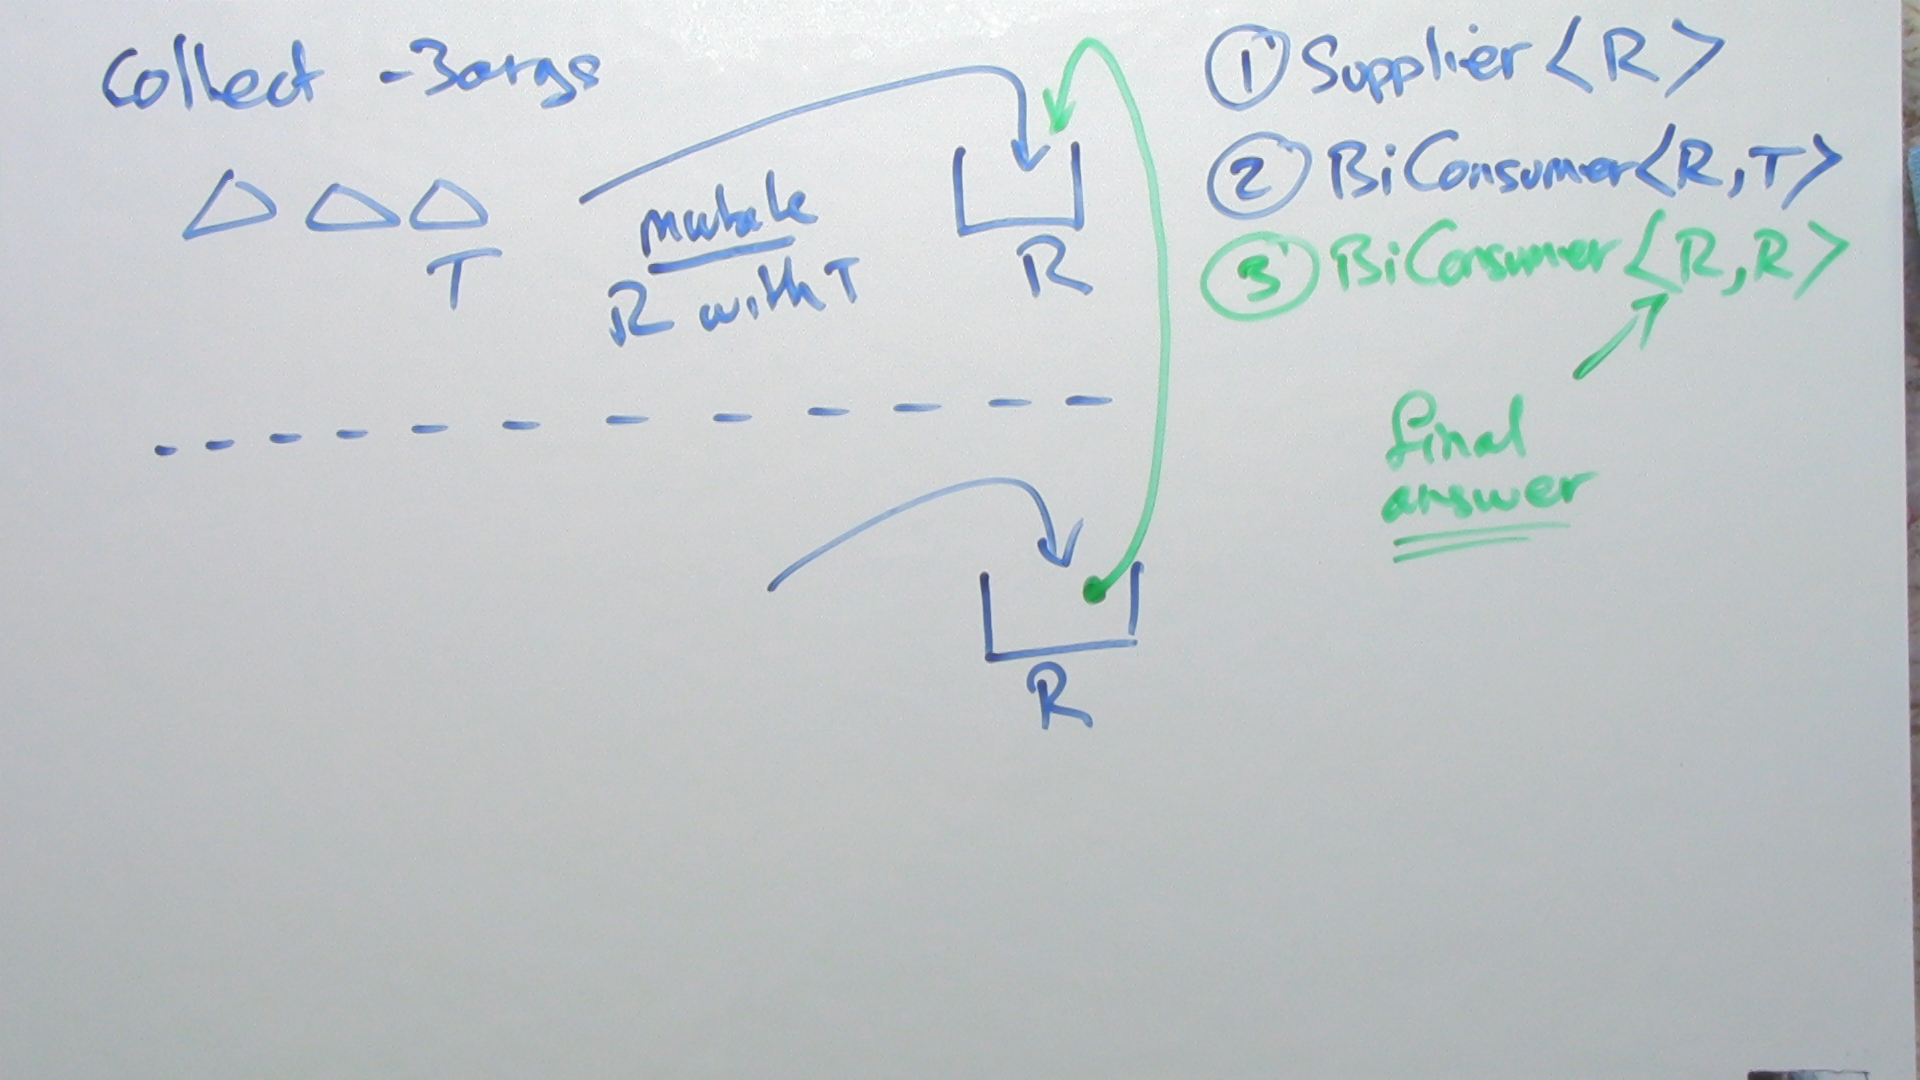 Collect - 3args
T
mutate
R with T
R
① Supplier<R>
② BiConsumer<R,T>
③ BiConsumer<R,R>
final
answer
R